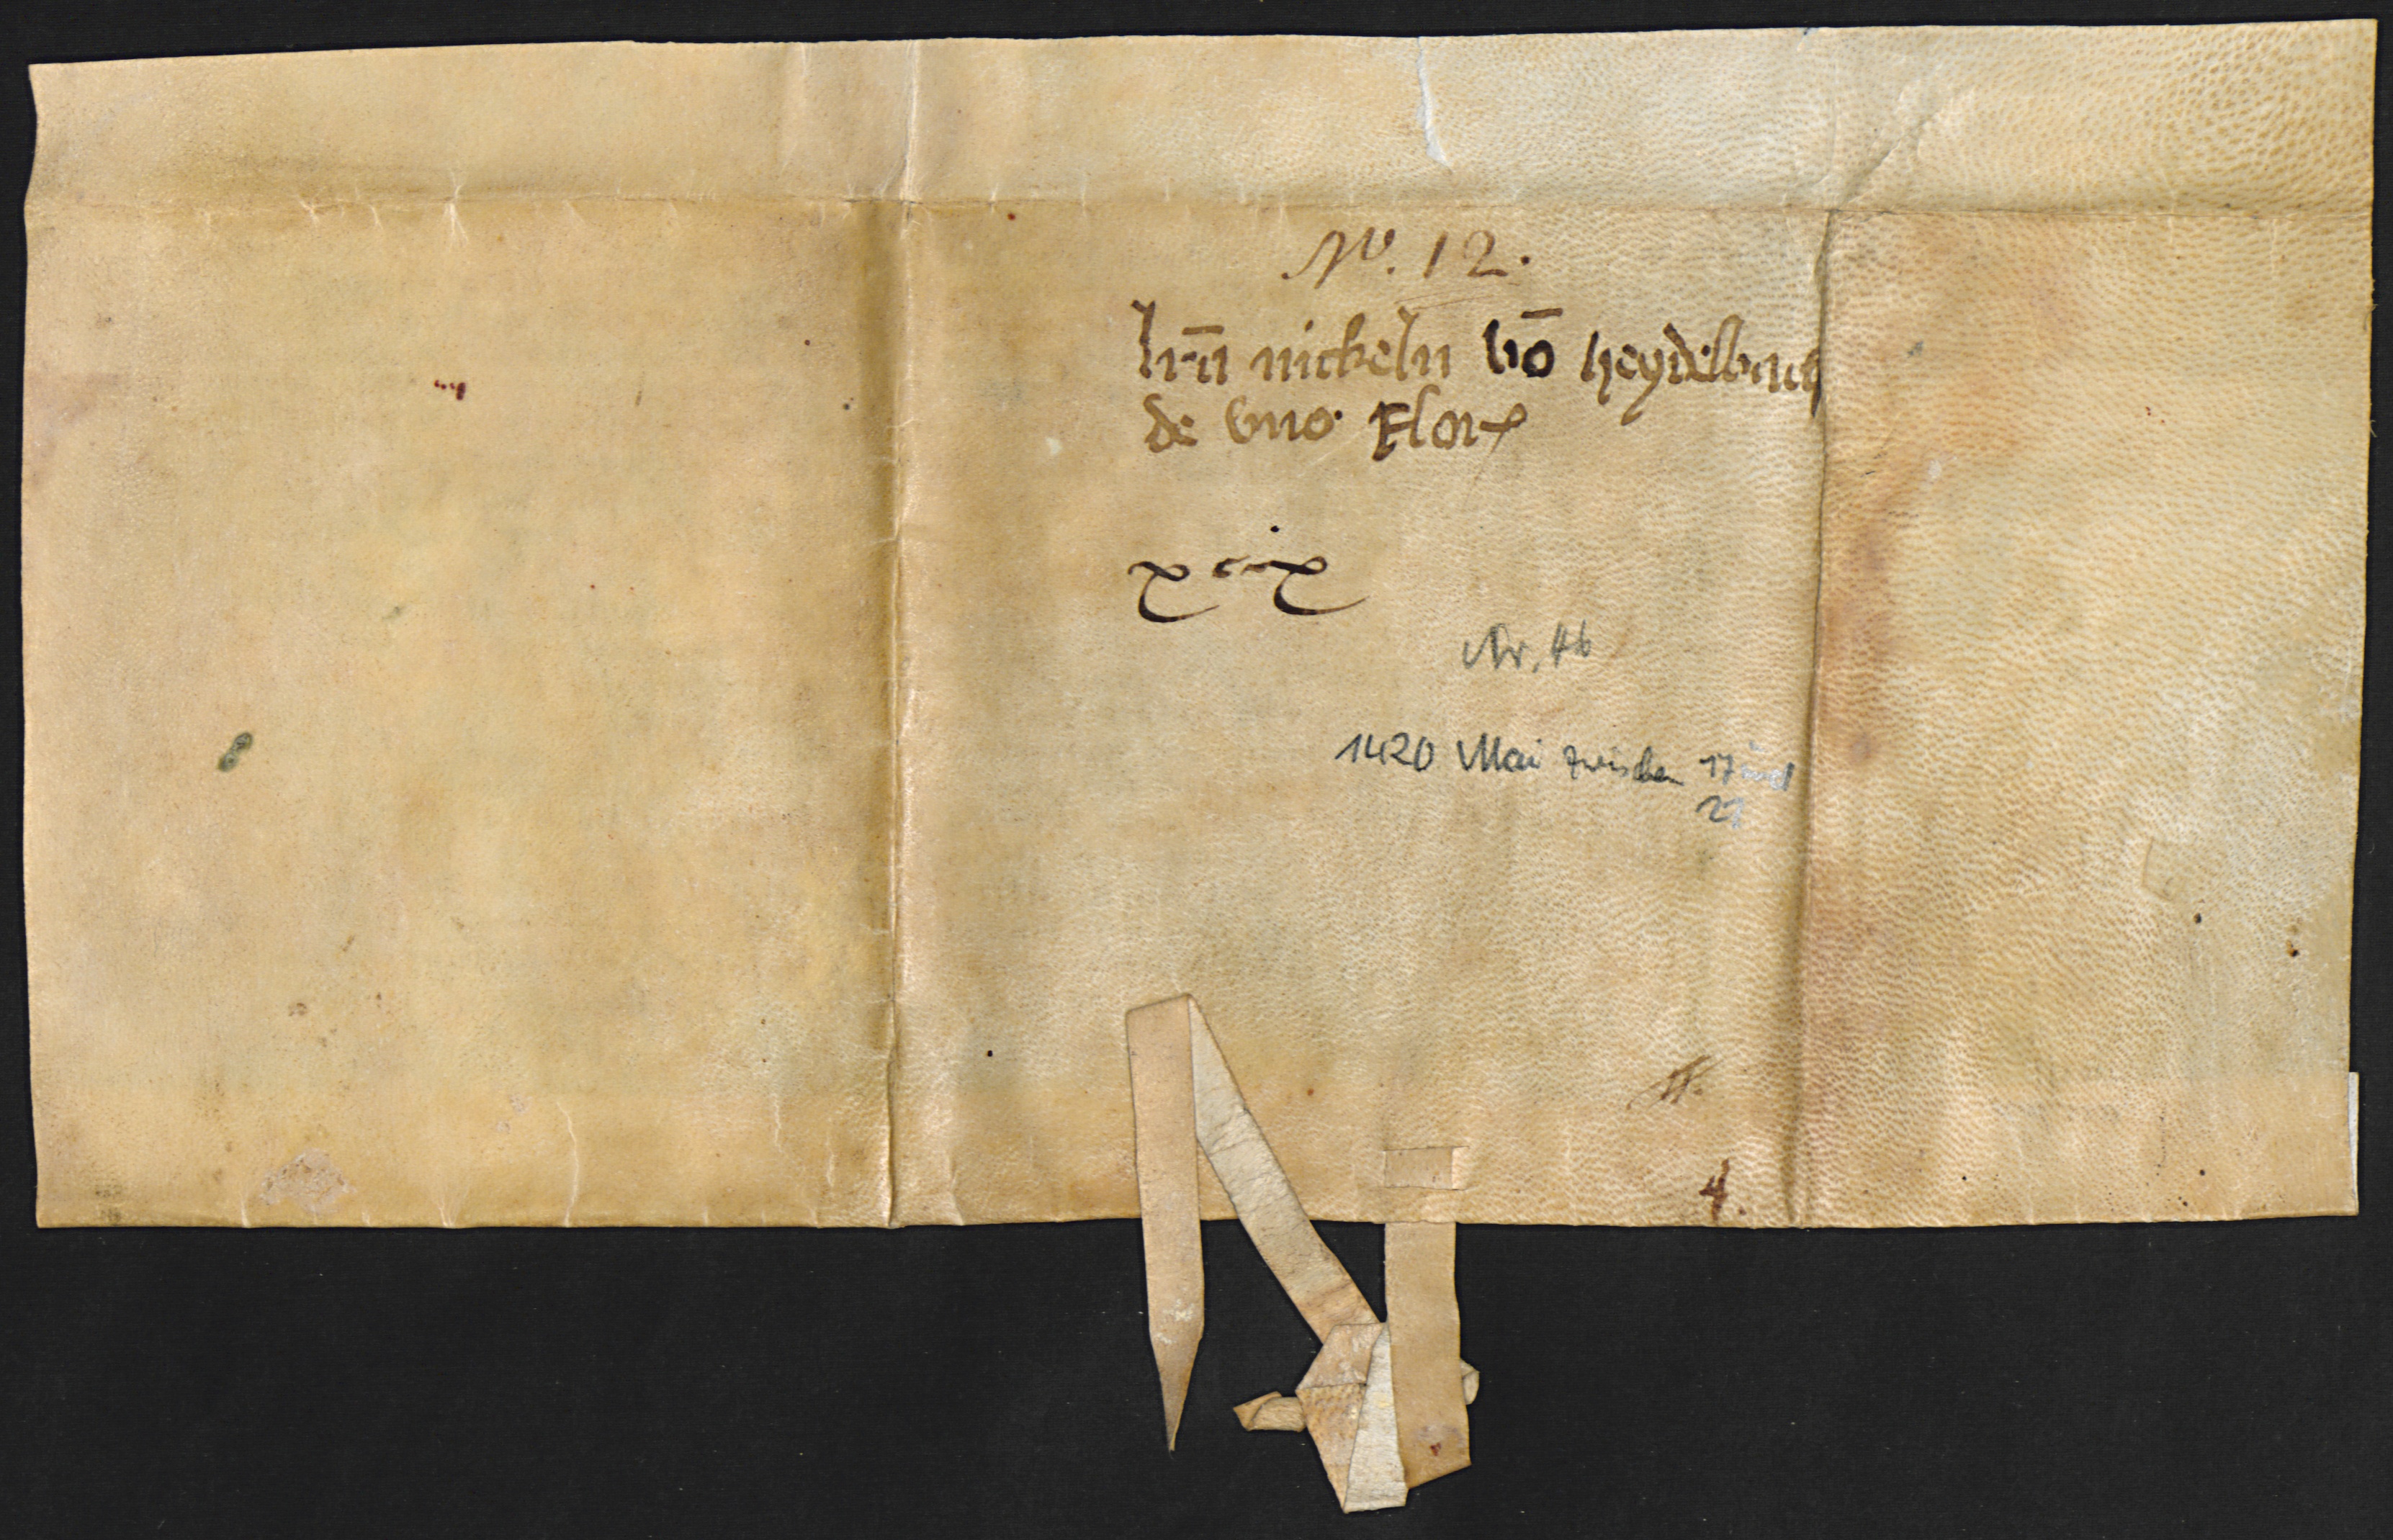 No. 12.
lr̄a nickeln vō heydelbach
de vno Flor
xcix
Nr. 46
1420 Mai zwischen 17 und
21
4.